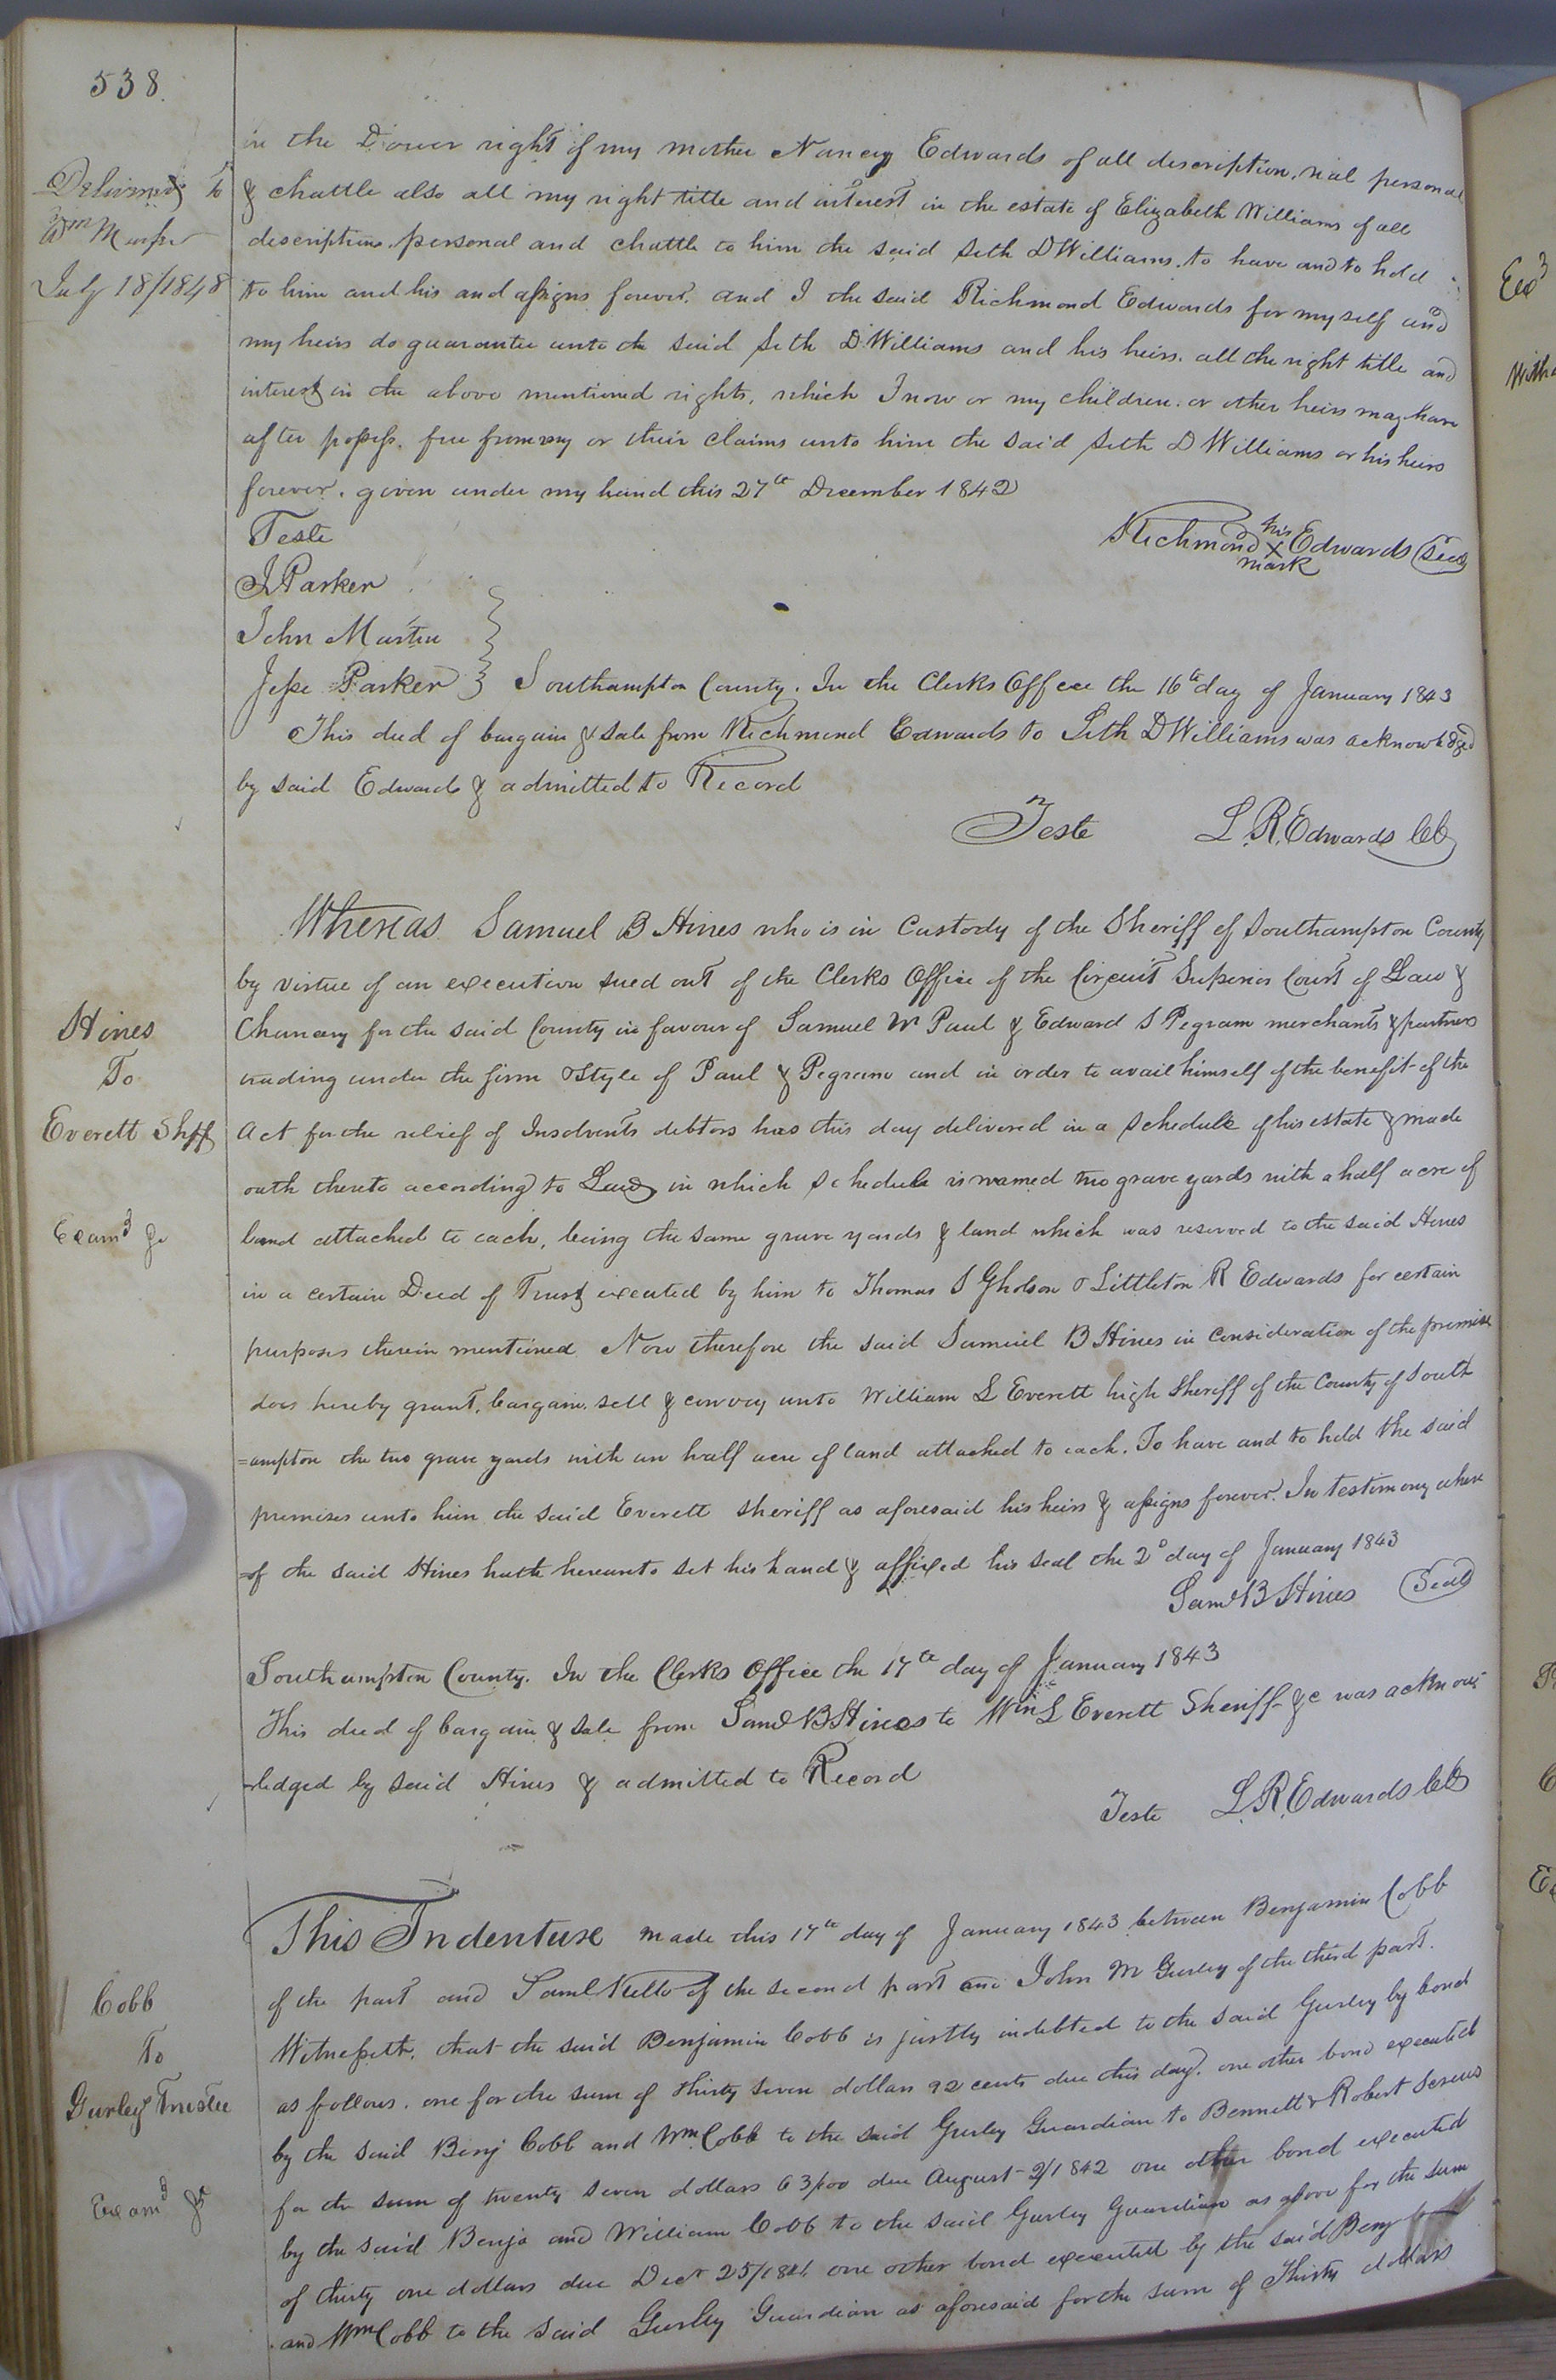 538.
in the Dower right of my mother Nancy Edwards of all description, rial personal
Delivered to
Wm
July 18/1848
& chattle also all my right title and interest in the estate of Elizabeth Williams of all
description, personal and chattle to him the said Seth D Williams. to have and to hold
to him and his and assigns forever. and I the said Richmond Edwards for myself and
my heirs do guarantee unto the said Seth D Williams and his heirs. all the right title and
interest in the above mentioned rights, which I now or my children. or other heirs may have
after possess. free from my or their claims unto him the said Seth D Williams or his heirs
forever. given under my hand this 27th December 1842
Teste
Richmond his X mark Edwards Seal
J Parker
John Martin
Jesse Parker } Southampton County. In the Clerks Office the 16th day of January 1843
This deed of bargain & sale from Richmond Edwards to Seth D Williams was acknowledged
by said Edwards & admitted to Record
Teste L. R. Edwards Clk
Whereas Samuel B Hines who is in Custody of the Sheriff of Southampton County
by virtue of an execution sued out of the Clerks Office of the Circuit Superior Court of Law &
Hines
To
Everett Shff
Examd
Chancery for the said County in favour of Samuel W Paul & Edward S Pegram merchants & partners
trading under the firm & Style of Paul & Pegram and in order to avail himself of the benefit of the
Act for the relief of Insolvents debtors has this day delivered in a Schedule of his estate & made
oath thereto according to Law in which Schedule is named two grave yards with a half acre of
land attached to each, being the same grave yards & land which was reserved to the said Hines
in a certain Deed of Trust executed by him to Thomas S Gholson & Littleton R Edwards for certain
purposes therein mentioned Now therefore the said Samuel B Hines in Consideration of the premises
does hereby grant, bargain, sell & convey unto William L Everett high Sheriff of the County of South
=ampton the two grave yards with an half acre of land attached to each. To have and to hold the said
premises unto him the said Everett Sheriff as aforesaid his heirs & assigns forever. In testimony where
=of the said Hines hath hereunto set his hand & affixed his seal the 2d day of January 1843
Saml B Hines Seal
Southampton County. In the Clerks Office the 17th day of January 1843
This deed of bargain & sale from Saml B Hines to Wm L Everett Sheriff &c was acknow
=ledged by said Hines & admitted to Record
Teste L. R. Edwards Clk
This Indenture made this 17th day of January 1843 between Benjamin Cobb
Cobb
To
Gurley Trustee
Examd
of the part and Saml Kello of the second part and John M Gurley of the third part.
Witnesseth, that the said Benjamin Cobb is justly indebted to the said Gurley by bond
as follows. one for the sum of thirty seven dollars 92 cents due this day. one other bond executed
by the said Benj Cobb and Wm Cobb to the said Gurley Guardian to Bennett & Robert Screws
for the sum of twenty seven dollars 63/100 due August 2/1842 one other bond executed
by the said Benja and William Cobb to the said Gurley Guardian as above for the sum
of thirty one dollars due Decr 25/1841 one other bond executed by the said Benj Cobb
and Wm Cobb to the said Gurley Guardian as aforesaid for the sum of Thirty dollars